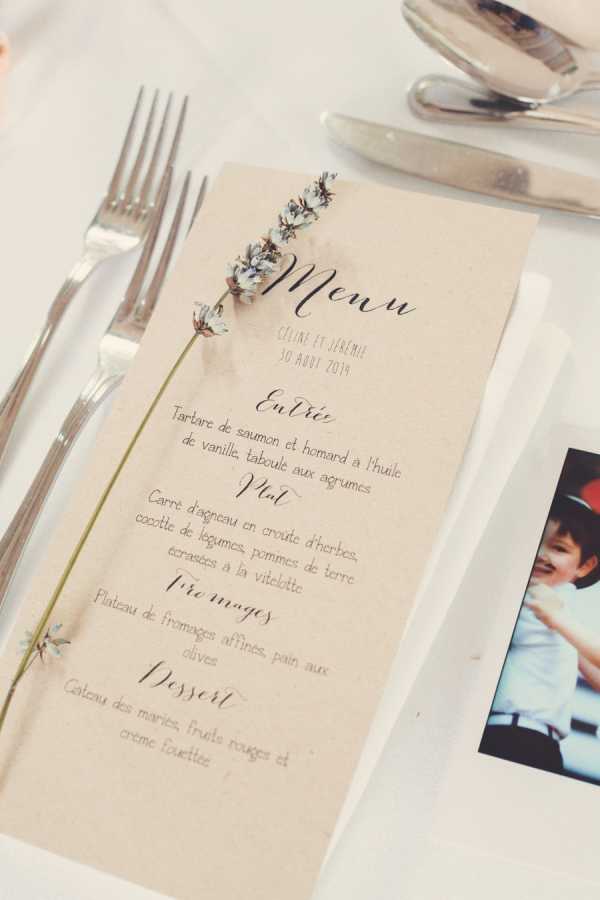 Menu
CÉLINE ET JÉRÉMIE
30 AOUT 2014
Entrée
Tartare de saumon et homard à l'huile
de vanille, taboulé aux agrumes
Plat
Carré d'agneau en croûte d'herbes,
cocotte de légumes, pommes de terre
écrasées à la vitelotte
Fromages
Plateau de fromages affinés, pain aux
olives
Dessert
Gâteau des mariés, fruits rouges et
crème fouettée